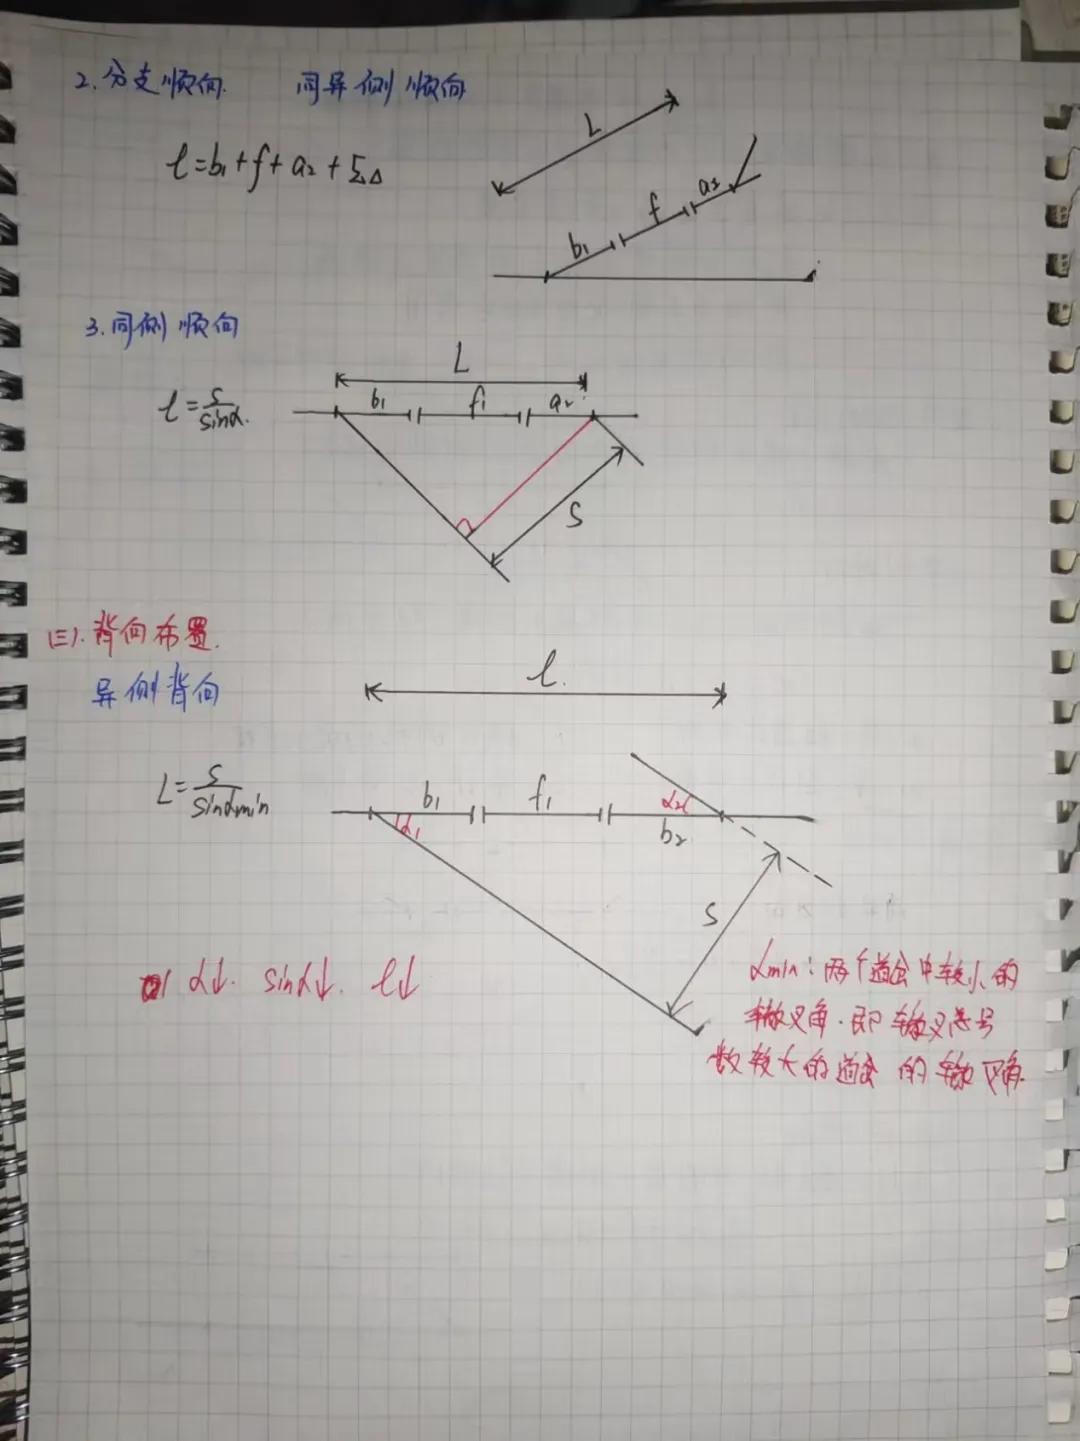 2.分支顺向. 同异侧顺向
l=b₁+f+a₂+ΣΔ
L
b₁ f a₂
3.同侧顺向
l=S/sinα.
L
b₁ f₁ a₂
S
(三).背向布置.
异侧背向
l.
L=S/sinαmin
b₁ f₁ b₂
α₁ α₂
S
α↓. sinα↓. l↓
αmin:两个道岔中较小的
辙叉角.即辙叉总号
数较大的道岔的辙叉角.